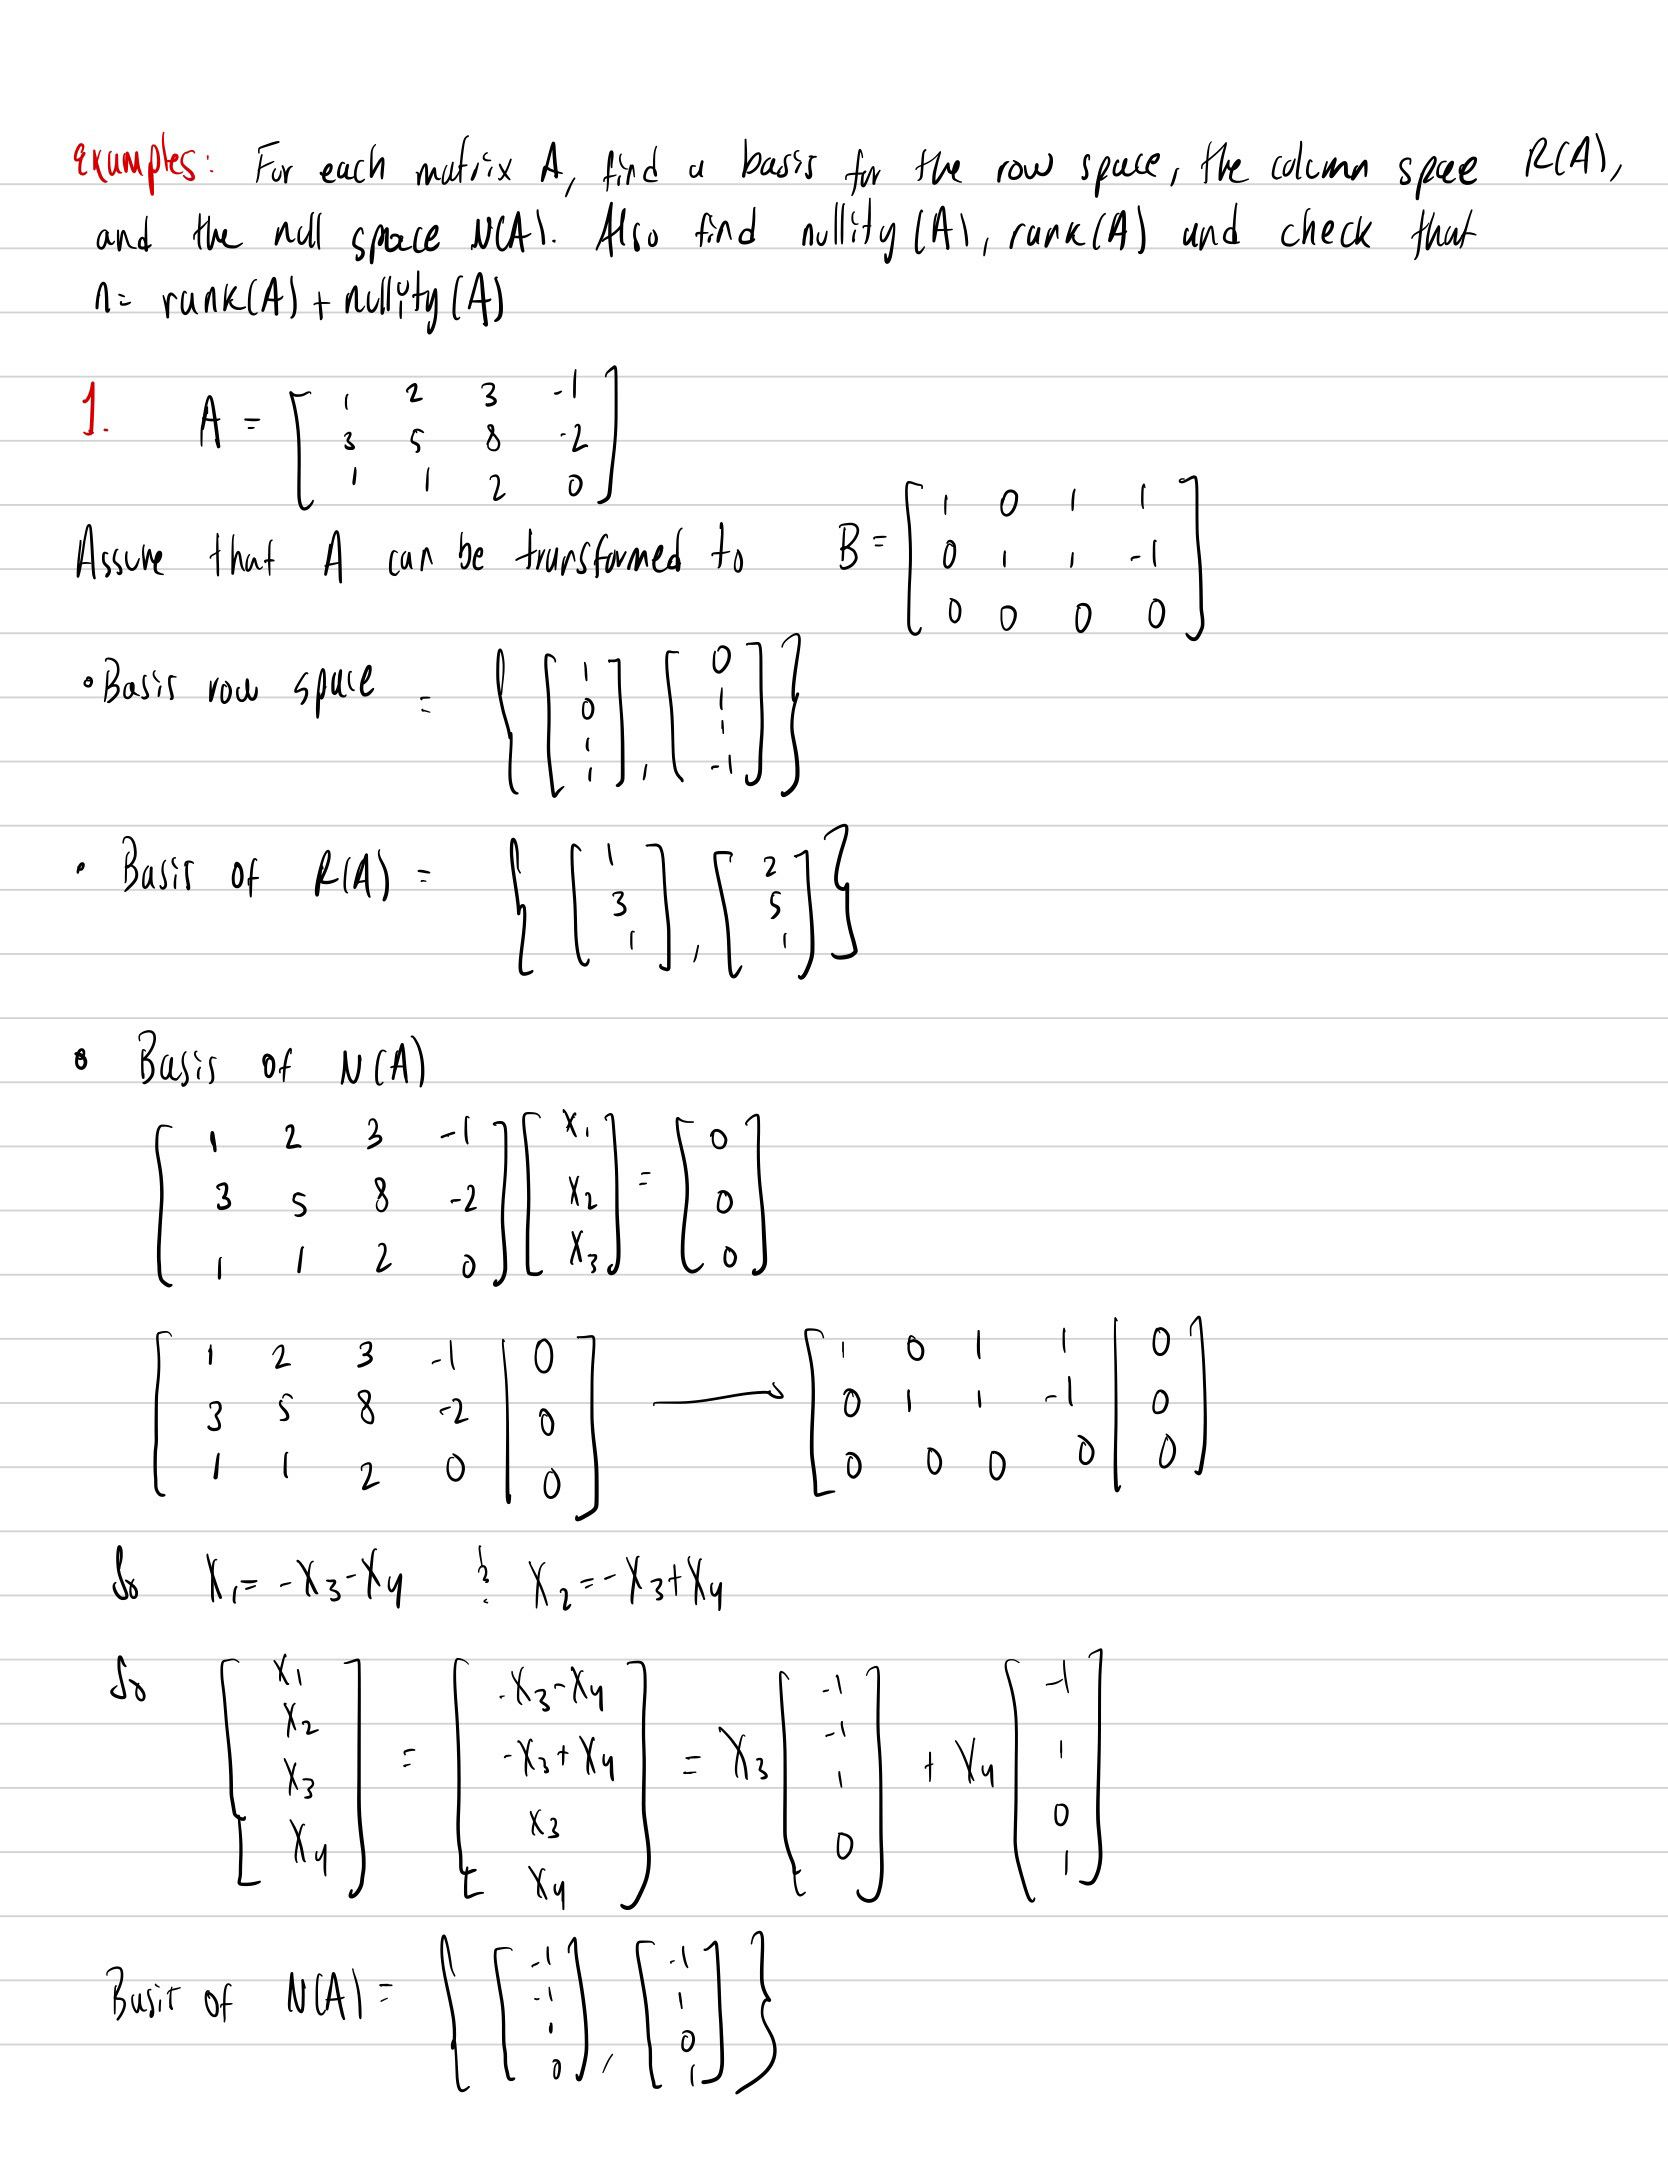 examples: For each matrix A, find a basis for the row space, the column space R(A),
and the null space N(A). Also find nullity(A), rank(A) and check that
n= rank(A) + nullity(A)
1. A = [ 1 2 3 -1
3 5 8 -2
1 1 2 0 ]
Assume that A can be transformed to B = [ 1 0 1 1
0 1 1 -1
0 0 0 0 ]
• Basis row space = { [ 1 0 1 1 ], [ 0 1 1 -1 ] }
• Basis of R(A) = { [ 1 3 1 ], [ 2 5 1 ] }
• Basis of N(A)
[ 1 2 3 -1
3 5 8 -2
1 1 2 0 ] [ x1 x2 x3 ] = [ 0 0 0 ]
[ 1 2 3 -1 | 0
3 5 8 -2 | 0
1 1 2 0 | 0 ] → [ 1 0 1 1 | 0
0 1 1 -1 | 0
0 0 0 0 | 0 ]
So x1 = -x3 - x4 & x2 = -x3 + x4
So [ x1 x2 x3 x4 ] = [ -x3-x4 -x3+x4 x3 x4 ] = x3 [ -1 -1 1 0 ] + x4 [ -1 1 0 1 ]
Basis of N(A) = { [ -1 -1 1 0 ], [ -1 1 0 1 ] }